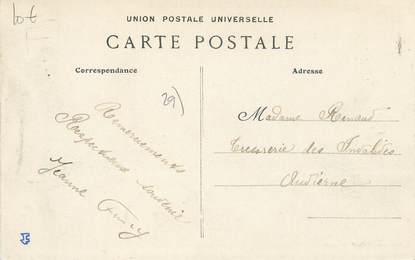 lot
UNION POSTALE UNIVERSELLE
CARTE POSTALE
Correspondance
Adresse
29)
Remerciements
Respectueux souvenir
Jeanne
Madame Renaud
Tresorerie des Invalides
Audierne